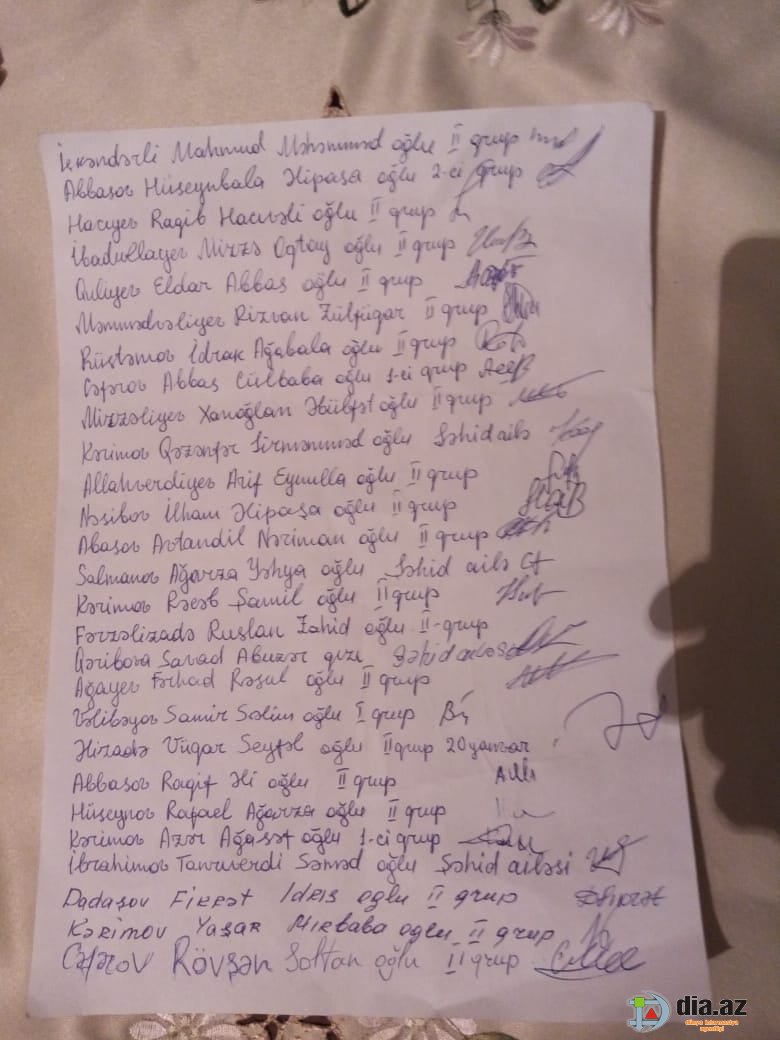 İskəndərli Mahmud Məhəmməd oğlu II qrup
Abbasov Hüseynbala Əlipaşa oğlu 2-ci qrup
Hacıyev Raqib Hacıvəli oğlu II qrup
İbadullayev Mirzə Oqtay oğlu II qrup
Quliyev Eldar Abbas oğlu II qrup
Məmmədvəliyev Rizvan Zülfüqar II qrup
Rüstəmov İdrak Ağabala oğlu II qrup
Cəfərov Abbas Gülbaba oğlu 1-ci qrup
Mirzəliyev Xanoğlan Əhülfət oğlu II qrup
Kərimov Qəzənfər Şirməmməd oğlu Şəhid ailə
Allahverdiyev Arif Eynulla oğlu II qrup
Nəsibov İlham Əlipaşa oğlu II qrup
Abasov Avtandil Nəriman oğlu II qrup
Salmanov Ağarza Yəhya oğlu Şəhid ailə
Kərimov Rəcəb Şamil oğlu II qrup
Fərzəlizadə Ruslan Zahid oğlu II-qrup
Qəribova Savad Abuzər qızı Şəhid ailəsi
Ağayev Fərhad Rəsul oğlu II qrup
Vəlibəyov Samir Səlim oğlu I qrup
Əlizadə Vüqar Seyfəl oğlu II qrup 20 yanvar
Abbasov Raqif Əli oğlu II qrup
Hüseynov Rafael Ağarza oğlu II qrup
Kərimov Azər Ağasəf oğlu 1-ci qrup
İbrahimov Tanrıverdi Səməd oğlu Şəhid ailəsi
Dadaşov Fikrət İdris oğlu II qrup
Kərimov Yaşar Mirbaba oğlu II qrup
Cəfərov Rövşən Soltan oğlu II qrup
dia.az